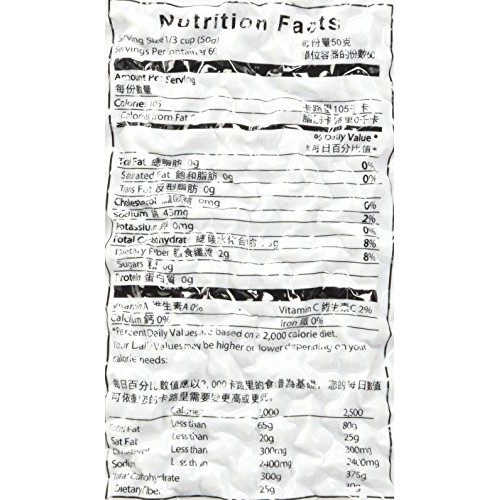 Nutrition Facts
Serving Size 1/3 cup (50g)
Servings Per Container 60
每份量50克
單位容器的份數60
Amount Per Serving
每份數量
Calories 105
卡路里105千卡
Calories from Fat
脂肪卡路里0千卡
% Daily Value *
*每日百分比值*
Total Fat 總脂肪 0g 0%
Saturated Fat 飽和脂肪 0g 0%
Trans Fat 反型脂肪 0g
Cholesterol 膽固醇 0mg 0%
Sodium 鈉 43mg 2%
Potassium 鉀 0mg 0%
Total Carbohydrate 總碳水化合物 8%
Dietary Fiber 乳食纖維 2g 8%
Sugars 0g
Protein 蛋白質 0g
Vitamin A 維生素A 0%
Vitamin C 維生素C 2%
Calcium 鈣 0%
Iron 鐵 0%
*Percent Daily Values are based on a 2,000 calorie diet.
Your Daily Values may be higher or lower depending on your
calorie needs:
每日百分比數值應以2,000卡路里的食譜為基礎，您的每日數值
可依您的卡路里需要變更高或更低。
Calories 2,000 2,500
Total Fat Less than 65g 80g
Sat Fat Less than 20g 25g
Cholesterol Less than 300mg 300mg
Sodium Less than 2400mg 2400mg
Total Carbohydrate 300g 375g
Dietary Fiber 25g 30g